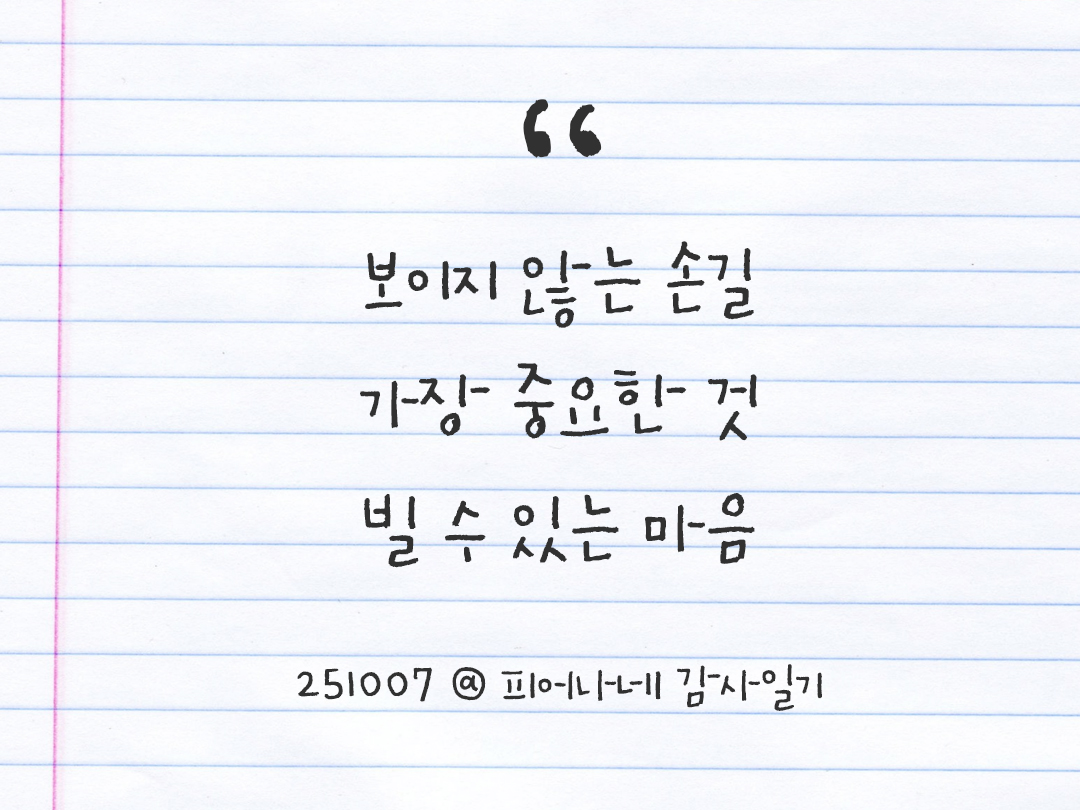 “
보이지 않는 손길
가장 중요한 것
빌 수 있는 마음
251007 @ 피어나네 감사일기